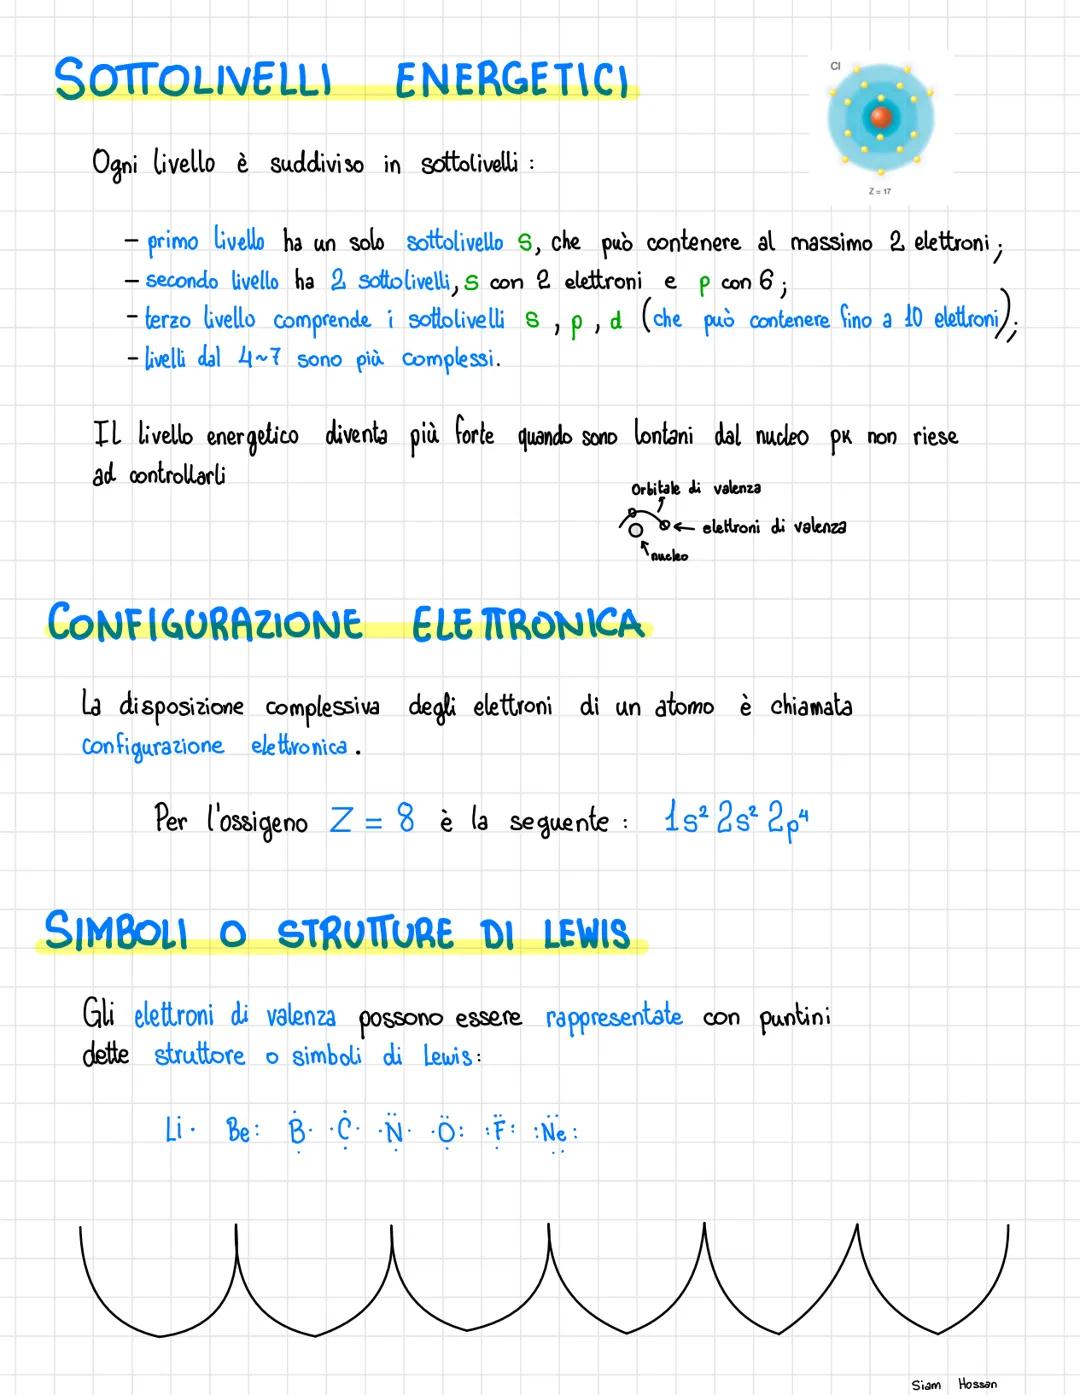 SOTTOLIVELLI ENERGETICI
Cl
Z = 17
Ogni livello è suddiviso in sottolivelli :
- primo livello ha un solo sottolivello s, che può contenere al massimo 2 elettroni ;
- secondo livello ha 2 sottolivelli, s con 2 elettroni e p con 6 ;
- terzo livello comprende i sottolivelli s , p , d (che può contenere fino a 10 elettroni) ;
- livelli dal 4~7 sono più complessi.
Il livello energetico diventa più forte quando sono lontani dal nucleo pk non riese
ad controllarli
Orbitale di valenza
elettroni di valenza
nucleo
CONFIGURAZIONE ELETTRONICA
La disposizione complessiva degli elettroni di un atomo è chiamata
configurazione elettronica .
Per l'ossigeno Z = 8 è la seguente : 1s² 2s² 2p⁴
SIMBOLI O STRUTTURE DI LEWIS
Gli elettroni di valenza possono essere rappresentate con puntini
dette struttore o simboli di Lewis :
Li Be B C N O F Ne
Siam Hossan